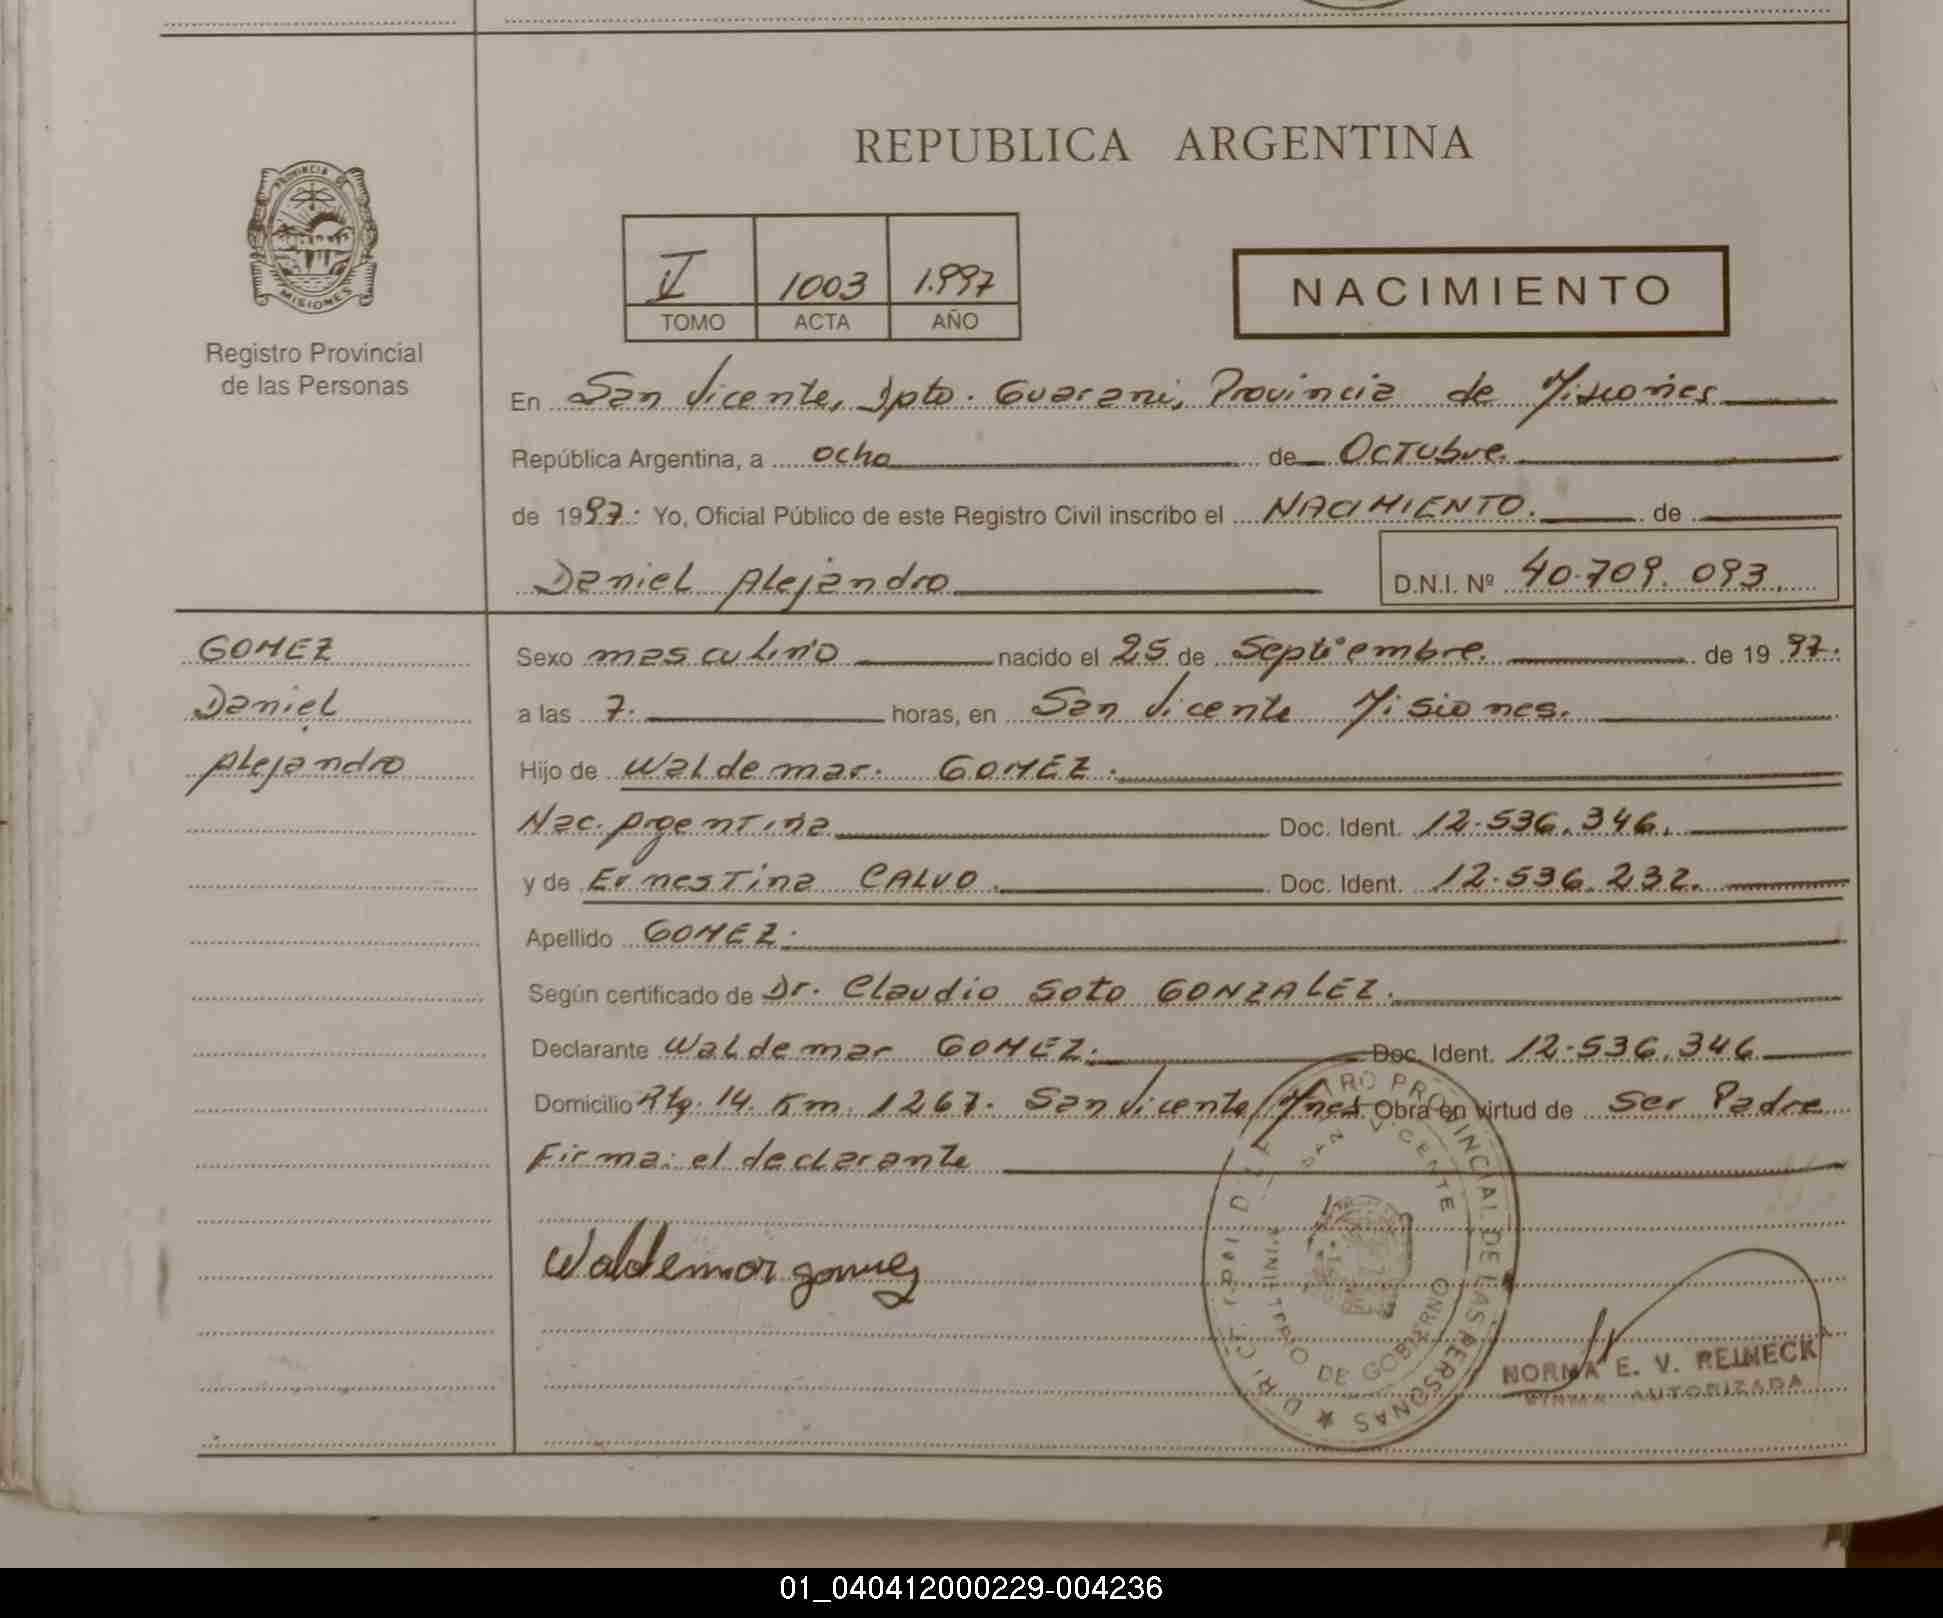 REPUBLICA ARGENTINA
PROVINCIA DE
MISIONES
Registro Provincial
de las Personas
V 1003 1.997
TOMO ACTA AÑO
NACIMIENTO
En San Vicente, Dpto. Guarani, Provincia de Misiones
República Argentina, a ocho de Octubre.
de 1997. Yo, Oficial Público de este Registro Civil inscribo el NACIMIENTO. de
Daniel Alejandro D.N.I. Nº 40.709.093.
GOMEZ
Daniel
Alejandro
Sexo masculino nacido el 25 de Septiembre. de 1997.
a las 7. horas, en San Vicente Misiones.
Hijo de Waldemar. GOMEZ.
Nac. Argentina Doc. Ident. 12.536.346.
y de Ernestina CALVO. Doc. Ident. 12.536.232.
Apellido GOMEZ.
Según certificado de Dr. Claudio Soto GONZALEZ.
Declarante Waldemar GOMEZ. Doc. Ident. 12.536.346
Domicilio Rta. 14. Km. 1267. San Vicente/Mnes. Obra en virtud de Ser Padre
Firma: el declarante
Waldemar gomez
PROVINCIAL DE LAS PERSONAS
SAN VICENTE
MINISTERIO DE GOBIERNO
NORMA E. V. REINECK
FIRMA AUTORIZADA
01_040412000229-004236